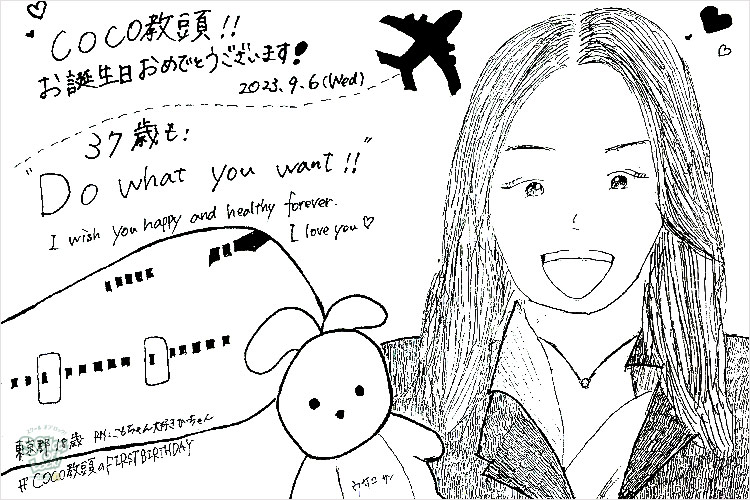 COCO教頭!!
お誕生日おめでとうございます!
2023.9.6(Wed)
37歳も:
"Do what you want!!"
I wish you happy and healthy forever.
I love you♡
東京都 18歳 RN:こもちゃん大好きかちゃん
#COCO教頭のFIRSTBIRTHDAY
ウサコサン